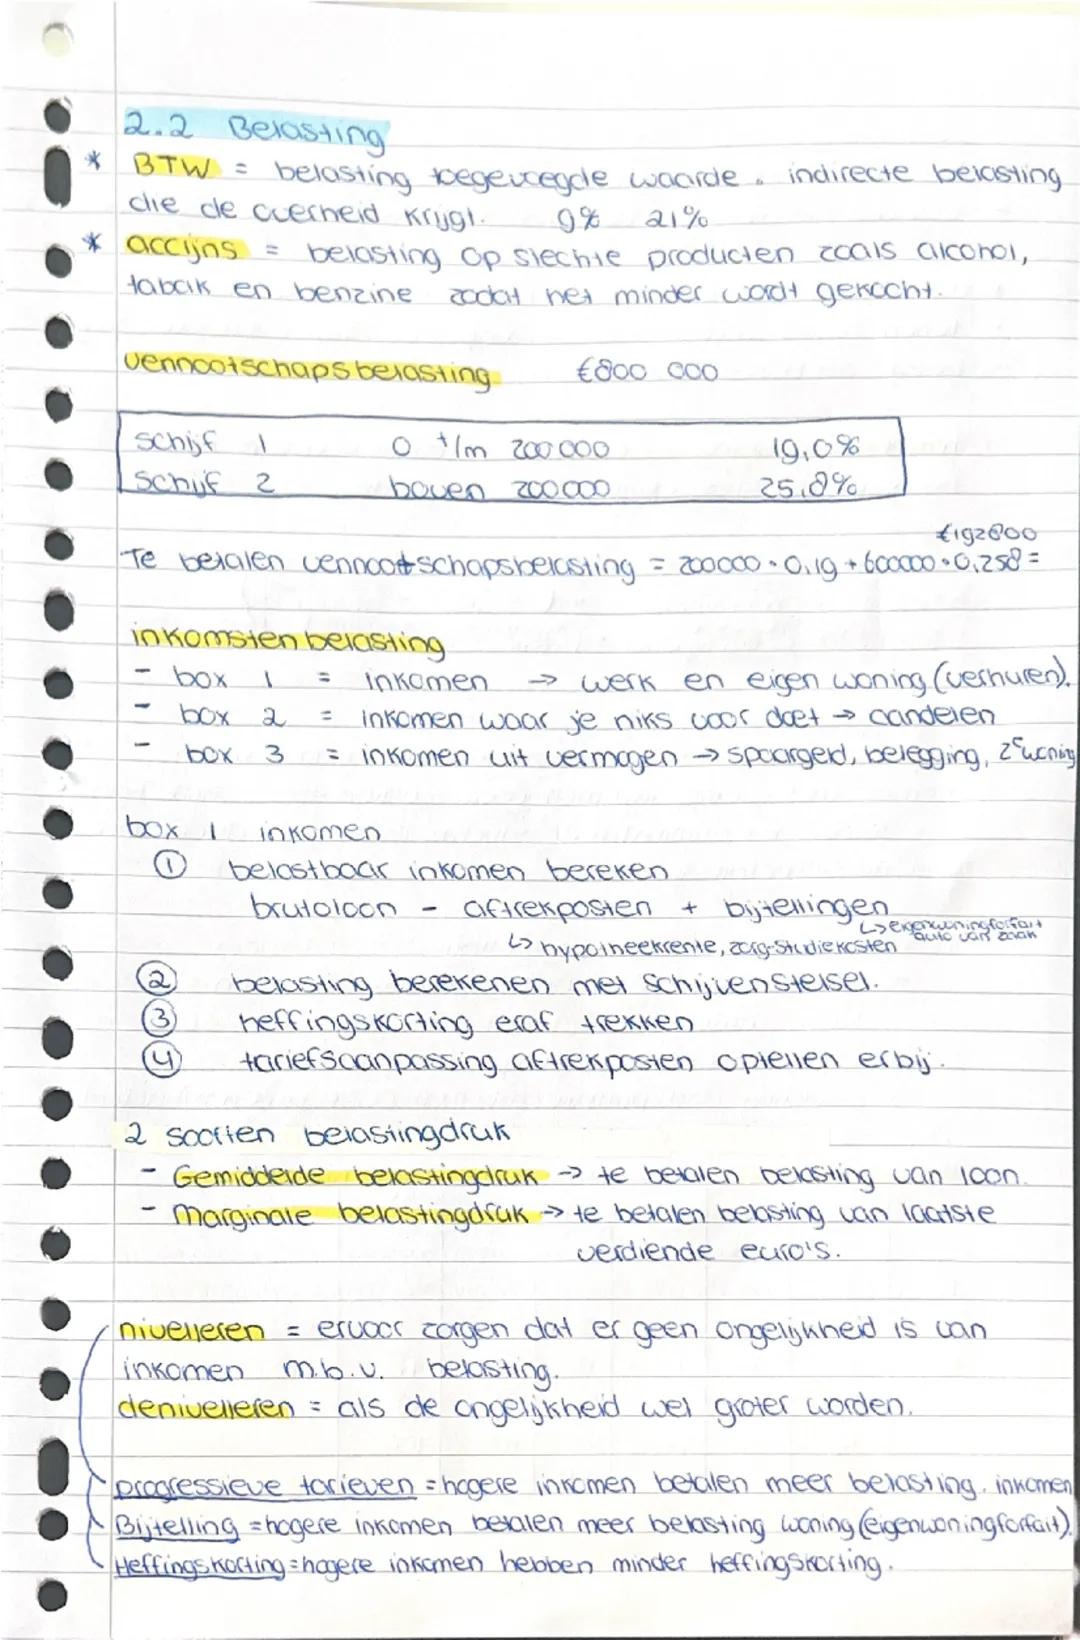 2.2 Belasting
* BTW = belasting toegevoegde waarde. indirecte belasting
die de overheid krijgt. 9% 21%
* accijns = belasting op slechte producten zoals alcohol,
tabak en benzine zodat het minder wordt gekocht.
vennootschapsbelasting €800 000
schijf 1 0 t/m 200 000 19,0%
schijf 2 boven 200.000 25,8%
€192800
Te betalen vennootschapsbelasting = 200000 · 0,19 + 600000 · 0,258 =
inkomstenbelasting
- box 1 = inkomen → werk en eigen woning (verhuren).
- box 2 = inkomen waar je niks voor doet → aandelen
- box 3 = inkomen uit vermogen → spaargeld, belegging, 2e woning
box 1 inkomen
① belastbaar inkomen bereken
brutoloon - aftrekposten + bijtellingen
↳ eigenwoningforfait
auto van zaak
↳ hypotheekrente, zorg-studiekosten
② belasting berekenen met schijvenstelsel.
③ heffingskorting eraf trekken
④ tariefsaanpassing aftrekposten optellen erbij.
2 soorten belastingdruk
- Gemiddelde belastingdruk → te betalen belasting van loon.
- marginale belastingdruk → te betalen belasting van laatste
verdiende euro's.
nivelleren = ervoor zorgen dat er geen ongelijkheid is van
inkomen m.b.v. belasting.
denivelleren = als de ongelijkheid wel groter worden.
progressieve tarieven = hogere inkomen betalen meer belasting. inkomen
Bijtelling = hogere inkomen betalen meer belasting woning (eigenwoningforfait).
Heffingskorting = hogere inkomen hebben minder heffingskorting.